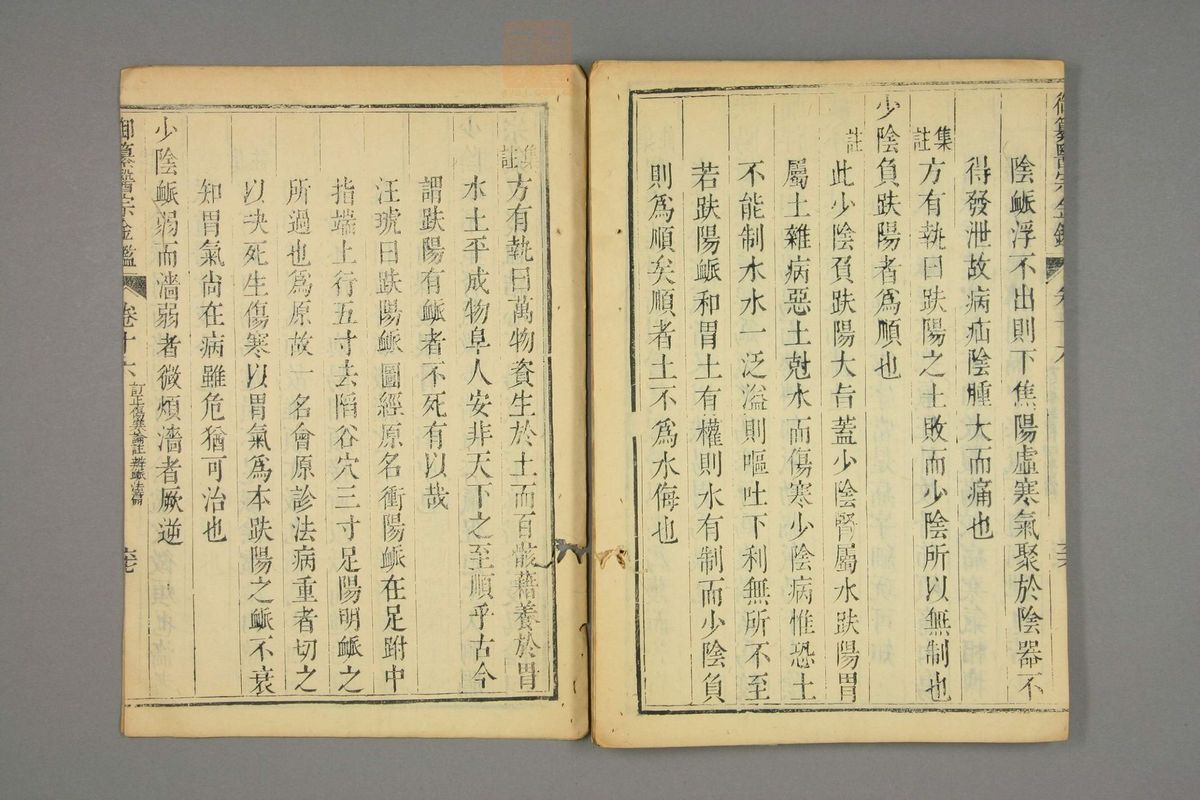 御纂醫宗金鑑 卷十六
陰脈浮不出則下焦陽虛寒氣聚於陰器不
得發泄故病疝陰腫大而痛也
集註方有執曰趺陽之土敗而少陰所以無制也
少陰負趺陽者為順也
註此少陰負趺陽大旨蓋少陰腎屬水趺陽胃
屬土雜病惡土尅水而傷寒少陰病惟恐土
不能制水水一泛溢則嘔吐下利無所不至
若趺陽脈和胃土有權則水有制而少陰負
則為順矣順者土不為水侮也
集註方有執曰萬物資生於土而百骸藉養於胃
水土平成物阜人安非天下之至順乎古今
謂趺陽有脈者不死有以哉
汪琥曰趺陽脈圖經原名衝陽脈在足跗中
指端上行五寸去陷谷穴三寸足陽明脈之
所過也為原故一名會原診法病重者切之
以決死生傷寒以胃氣為本趺陽之脈不衰
知胃氣尚在病雖危猶可治也
少陰脈弱而濇弱者微煩濇者厥逆
御纂醫宗金鑑 卷十六 訂正傷寒論註 辨脈法篇